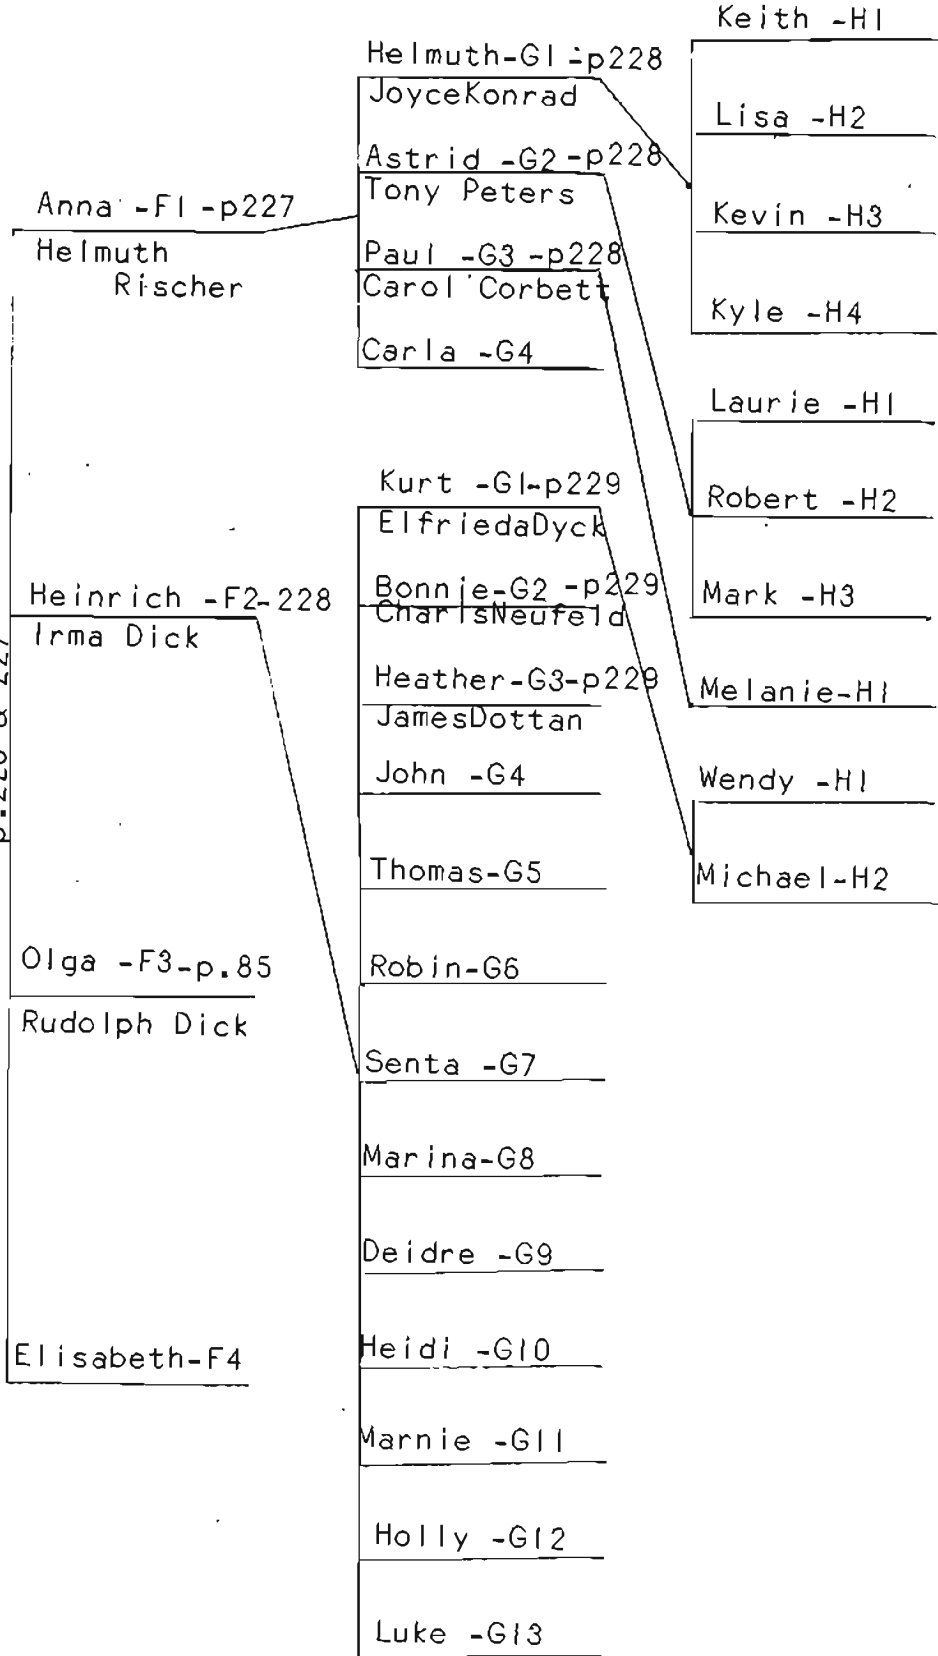 Anna -F1 -p227
Helmuth
Rischer
Heinrich -F2-228
Irma Dick
Olga -F3-p.85
Rudolph Dick
Elisabeth-F4
Helmuth-G1 -p228
JoyceKonrad
Astrid -G2 -p228
Tony Peters
Paul -G3 -p228
Carol Corbett
Carla -G4
Kurt -G1-p229
ElfriedaDyck
Bonnie-G2 -p229
CharlsNeufeld
Heather-G3-p229
JamesDottan
John -G4
Thomas-G5
Robin-G6
Senta -G7
Marina-G8
Deidre -G9
Heidi -G10
Marnie -G11
Holly -G12
Luke -G13
Keith -H1
Lisa -H2
Kevin -H3
Kyle -H4
Laurie -H1
Robert -H2
Mark -H3
Melanie-H1
Wendy -H1
Michael-H2